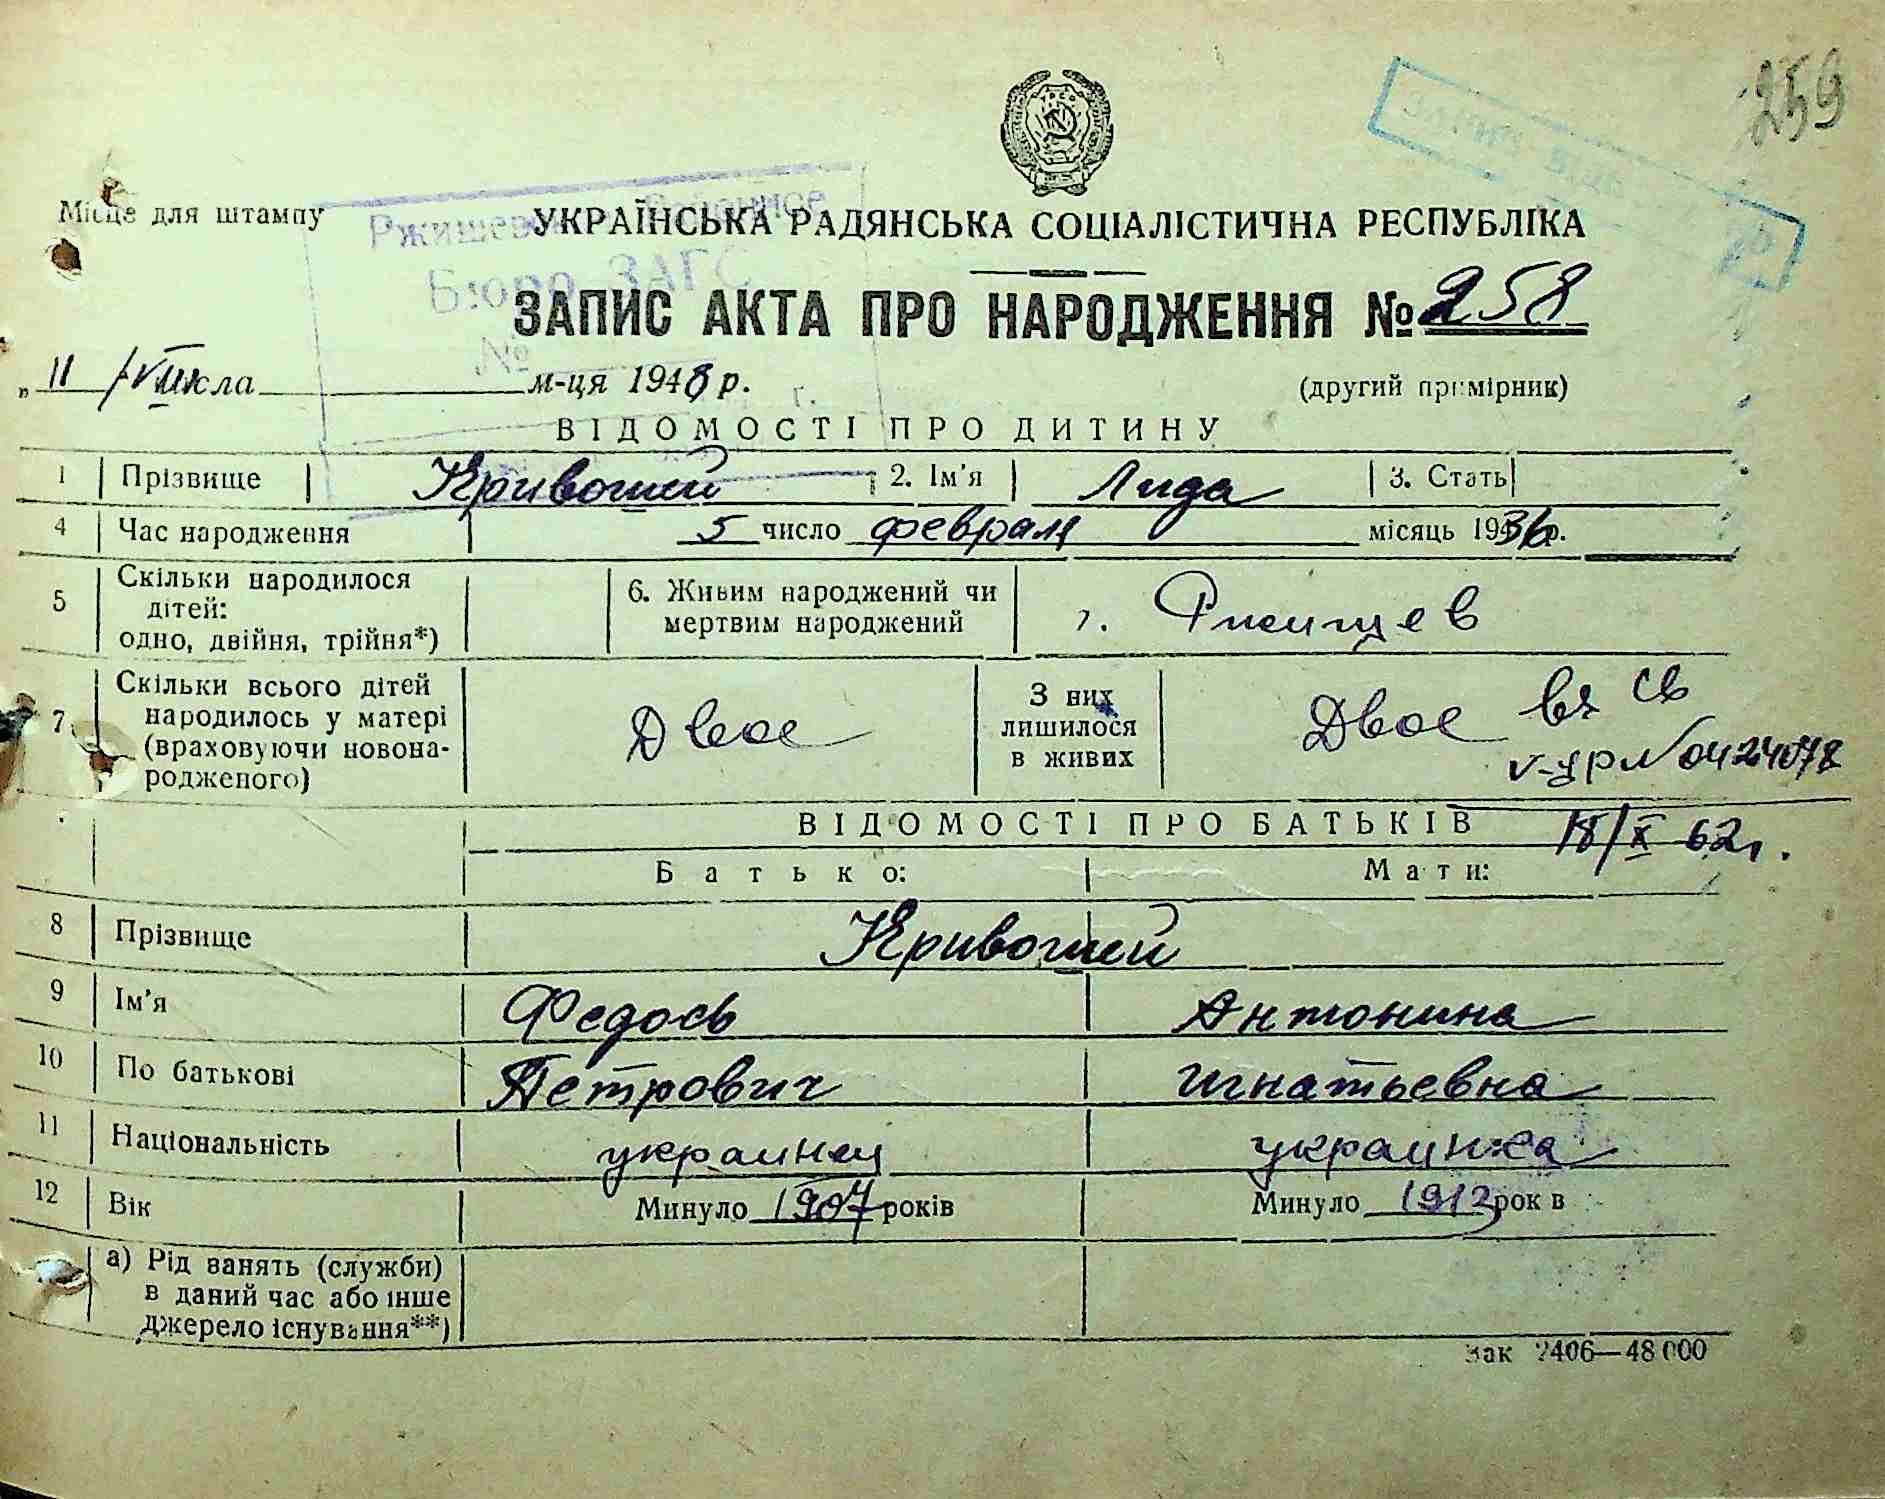 259
Місце для штампу
Ржищевское Районное
Бюро ЗАГС
№
УКРАЇНСЬКА РАДЯНСЬКА СОЦІАЛІСТИЧНА РЕСПУБЛІКА
ЗАПИС АКТА ПРО НАРОДЖЕННЯ № 258
„ 11 / VIII м-ця 1948 р. (другий примірник)
ВІДОМОСТІ ПРО ДИТИНУ
1 Прізвище Кривошей 2. Ім'я Лида 3. Стать
4 Час народження 5 число феврал місяць 1936 р.
5 Скільки народилося дітей: одно, двійня, трійня*) 6. Живим народжений чи мертвим народжений г. Ржищев
7 Скільки всього дітей народилось у матері (враховуючи новонародженого) Двое З них лишилося в живих Двое
св
V-УР № 0424078
18/X 62 г.
ВІДОМОСТІ ПРО БАТЬКІВ
Батько: Мати:
8 Прізвище Кривошей
9 Ім'я Федось Антонина
10 По батькові Петрович Игнатьевна
11 Національність украинец украинка
12 Вік Минуло 1907 років Минуло 1912 років
а) Рід занять (служби) в даний час або інше джерело існування**)
Зак 2406—48 000